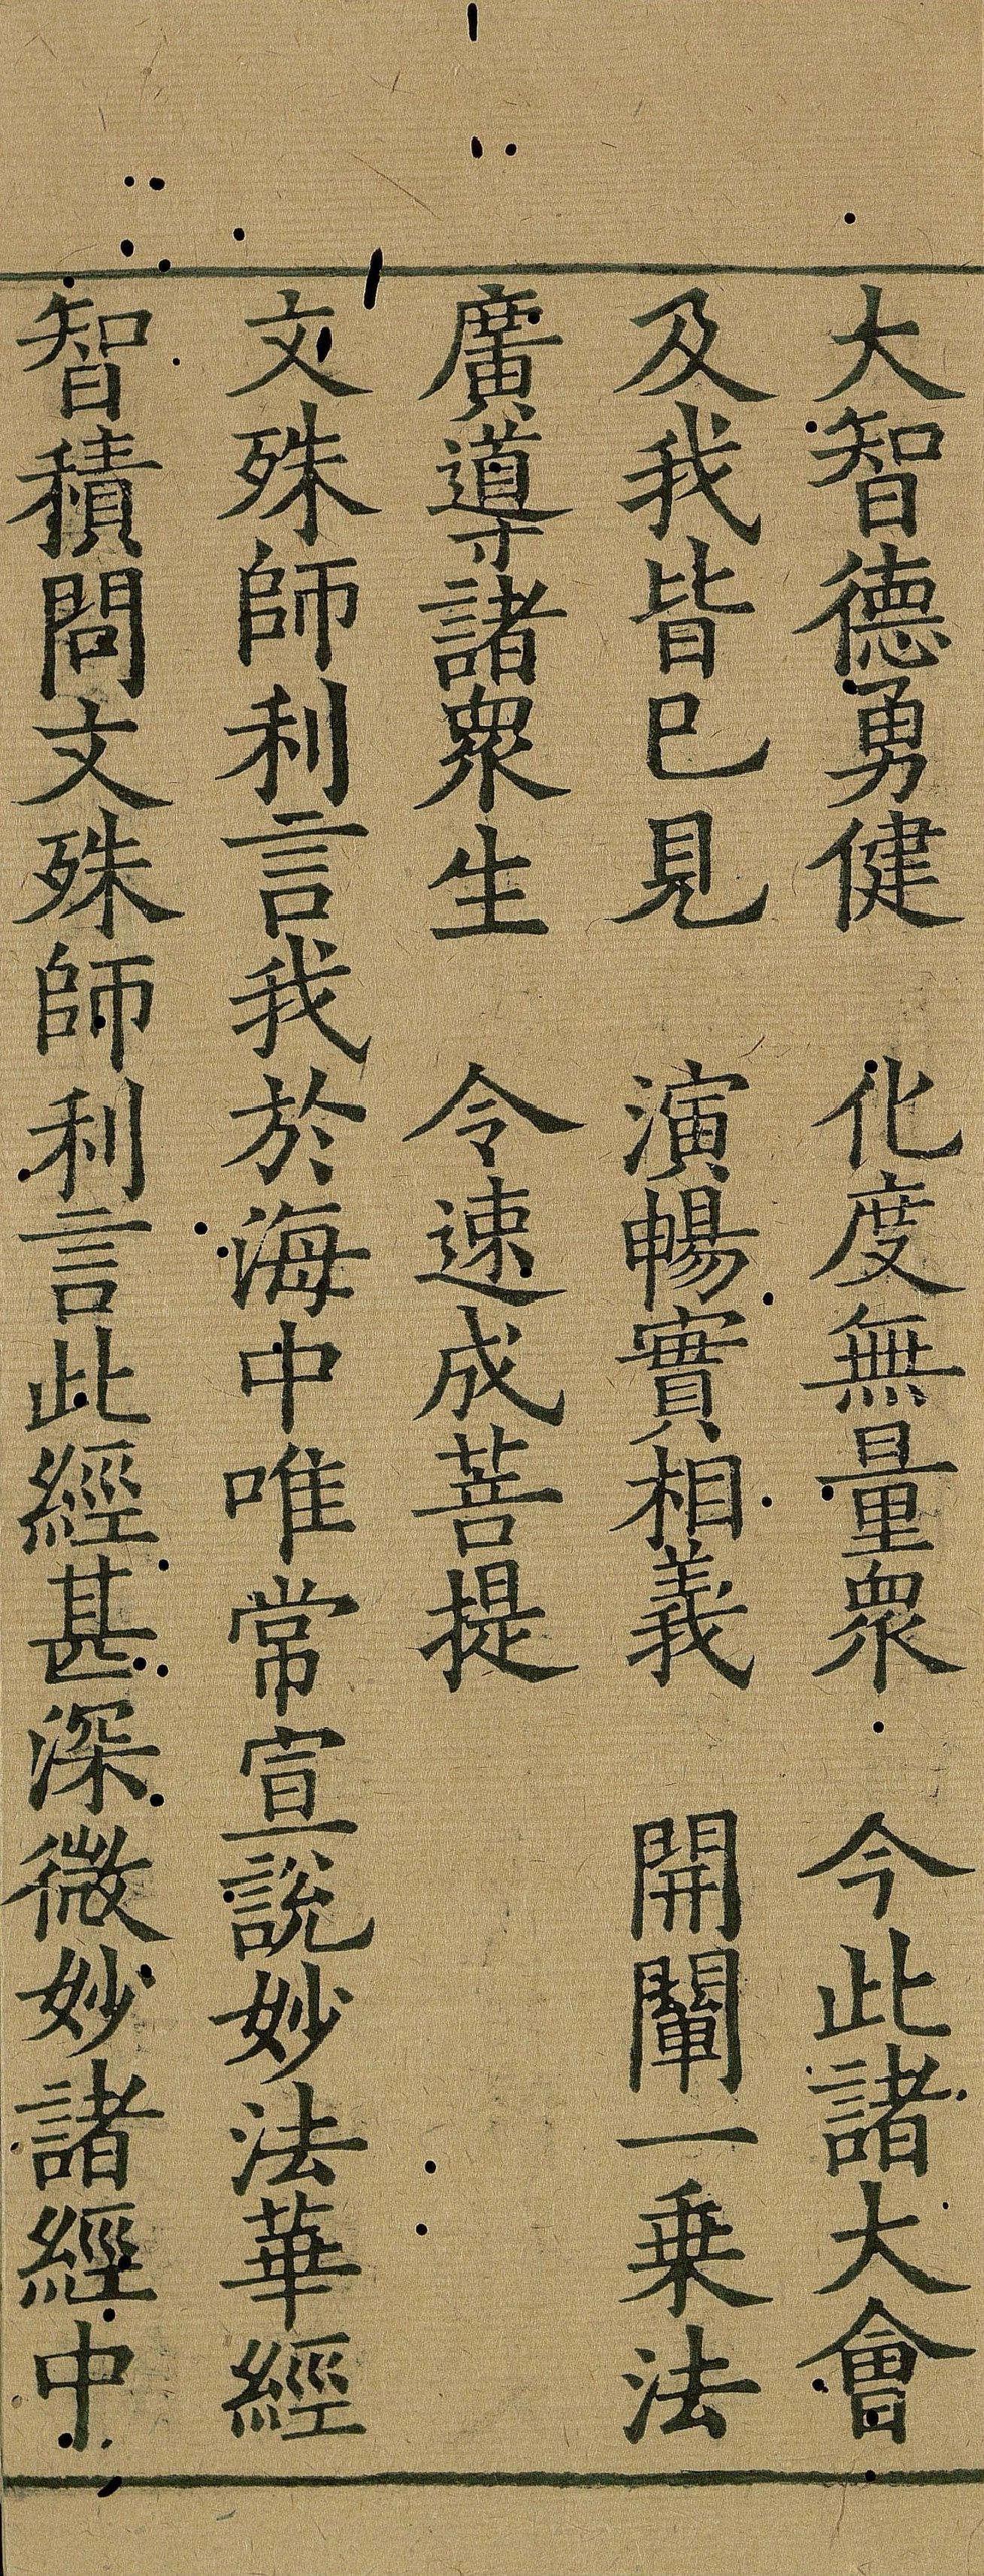 大智德勇健　化度無量衆　今此諸大會
及我皆已見　演暢實相義　開闡一乗法
廣導諸衆生　令速成菩提
文殊師利言我於海中唯常宣說妙法華經
智積問文殊師利言此經甚深微妙諸經中